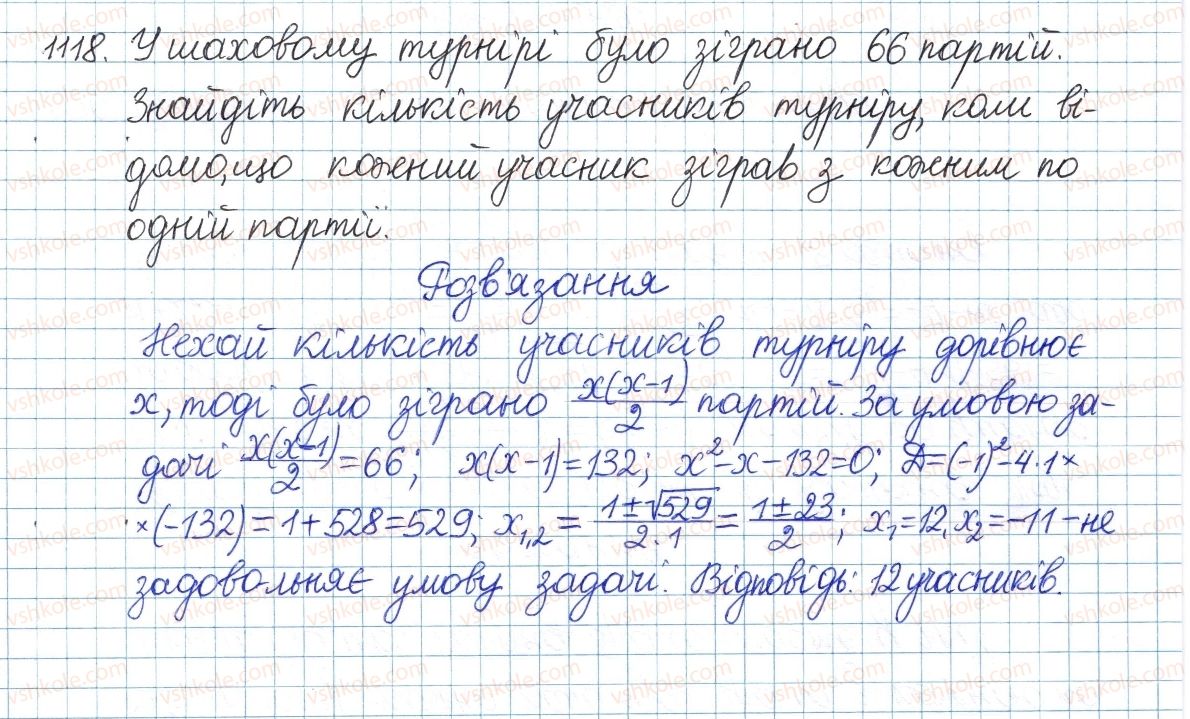 1118. У шаховому турнірі було зіграно 66 партій.
Знайдіть кількість учасників турніру, коли ві-
домо, що кожний учасник зіграв з кожним по
одній партії.
Розв'язання
Нехай кількість учасників турніру дорівнює
x, тоді було зіграно x(x-1)/2 партій. За умовою за-
дачі x(x-1)/2 = 66; x(x-1)=132; x²-x-132=0; D=(-1)²-4·1×
×(-132)=1+528=529; x₁,₂ = (1±√529)/(2·1) = (1±23)/2; x₁=12, x₂=-11 - не
задовольняє умову задачі. Відповідь: 12 учасників.